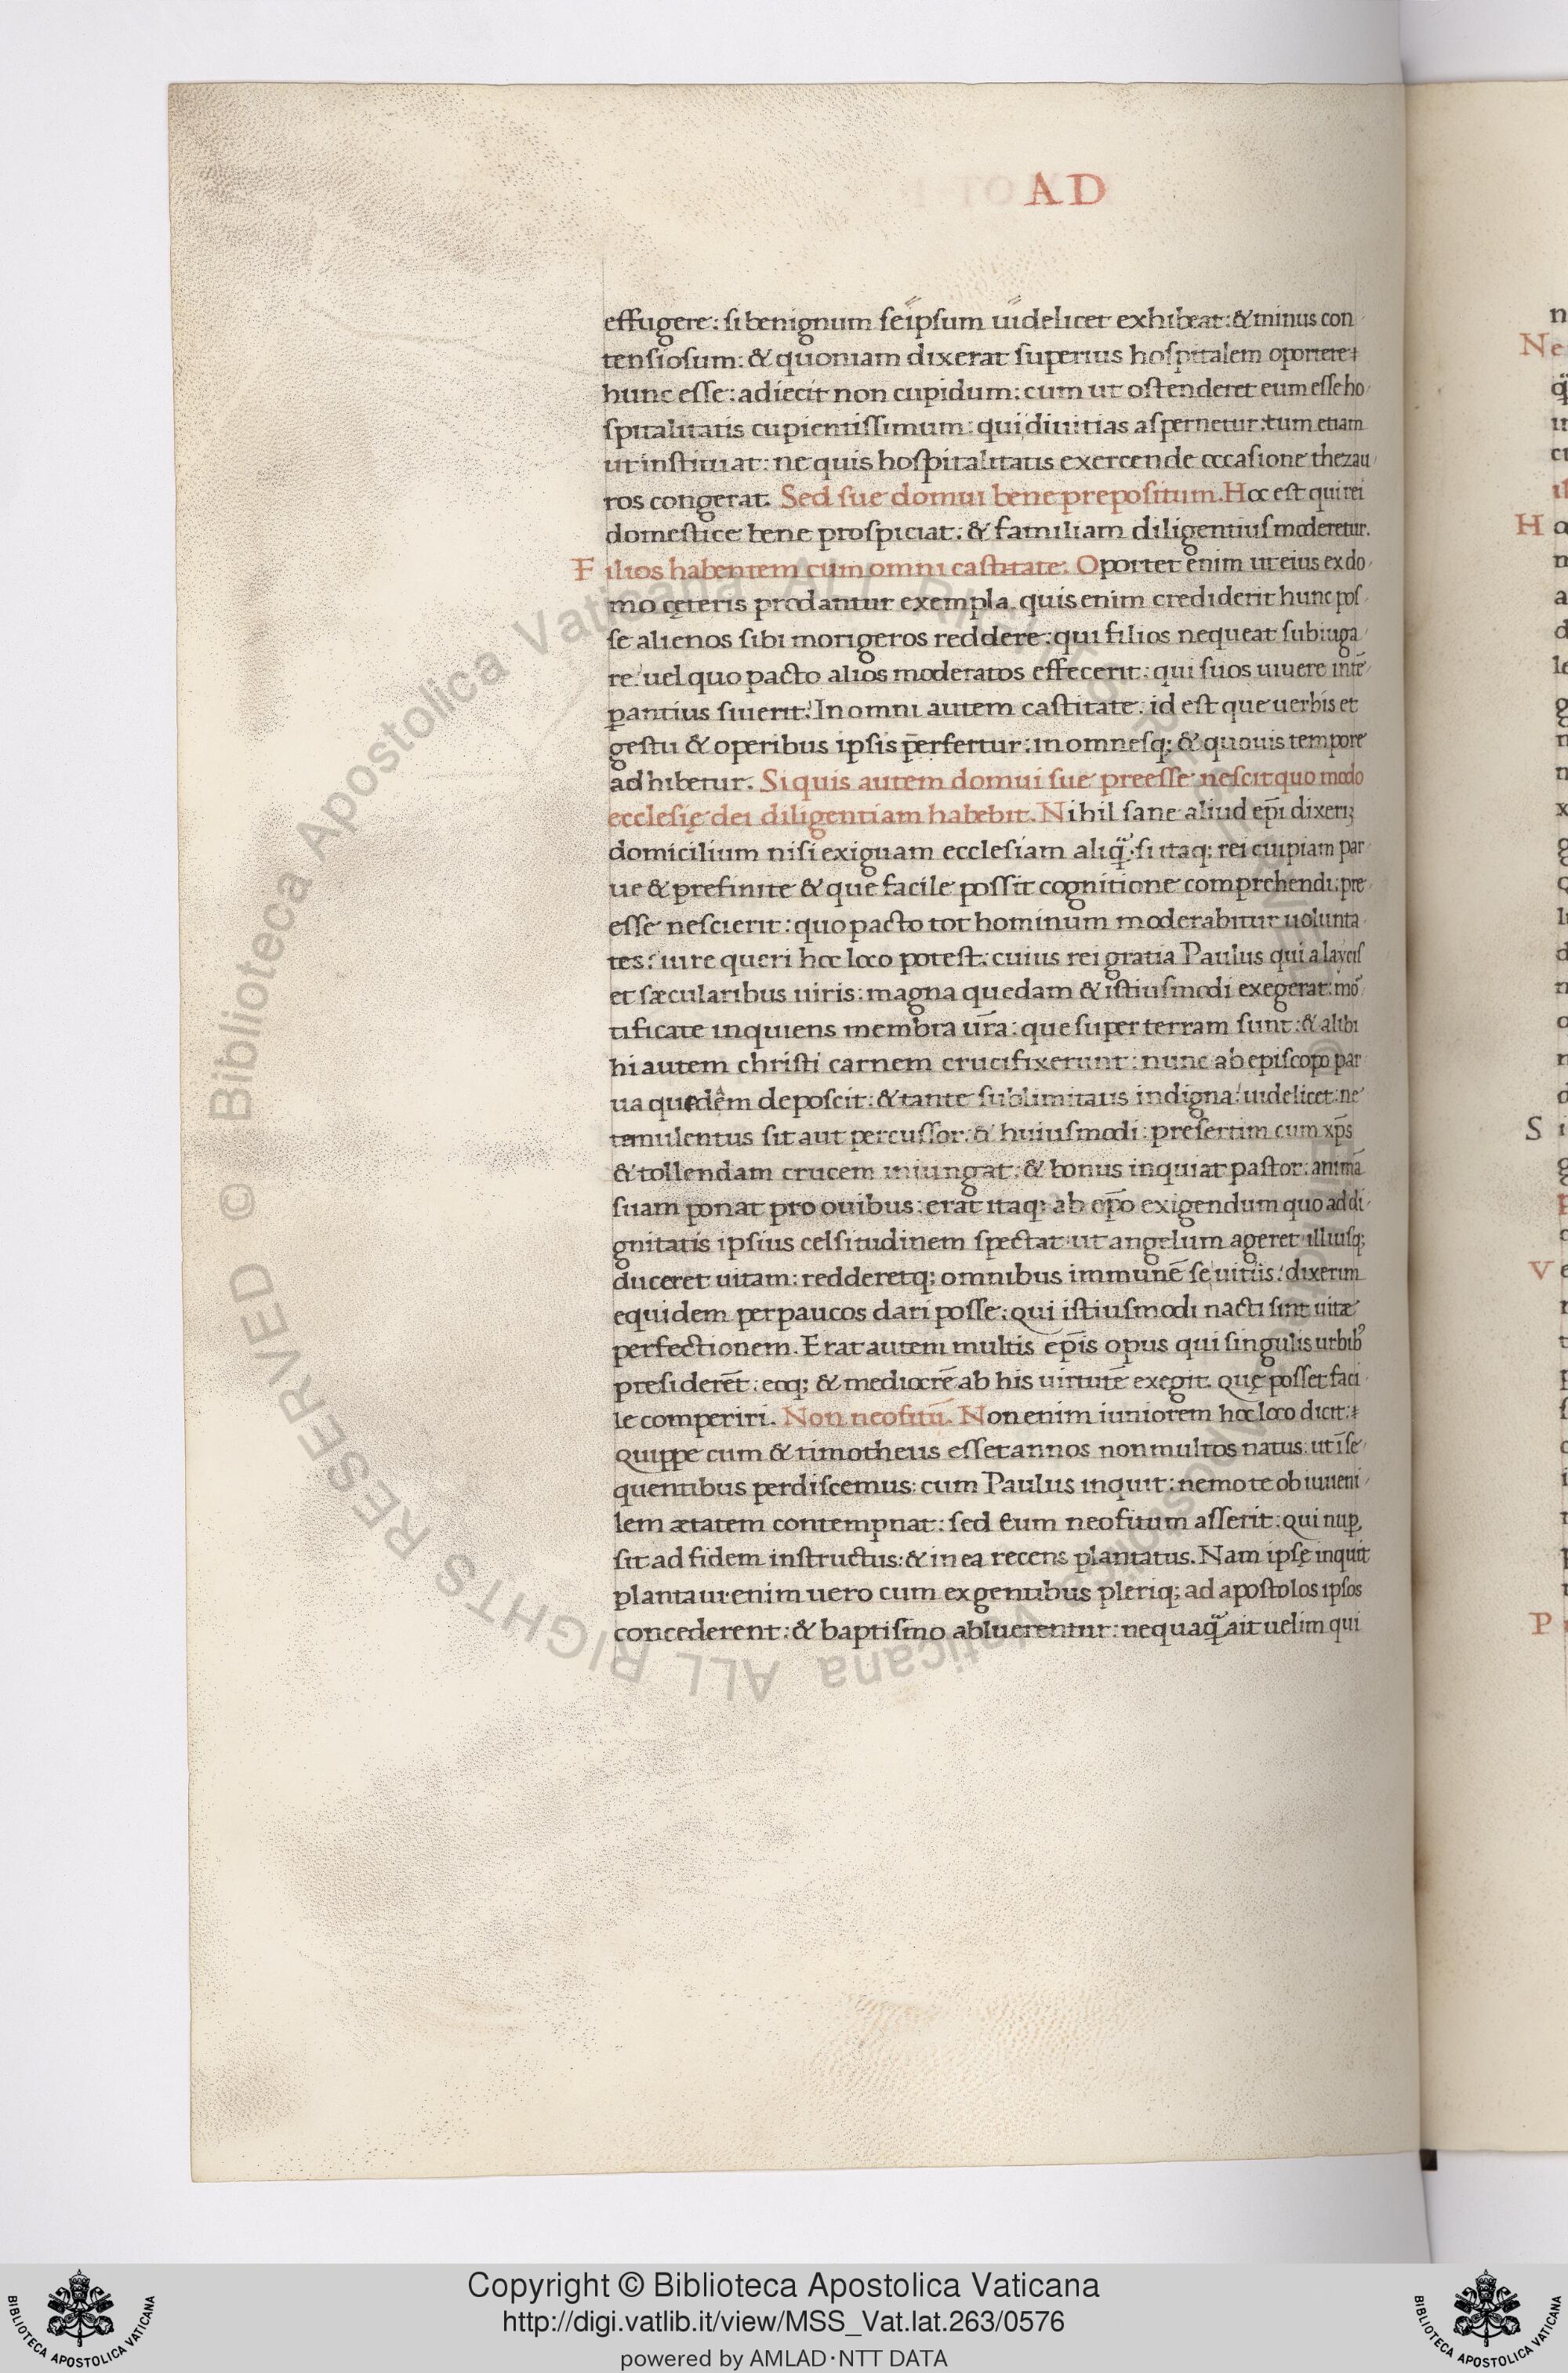 AD
effugere: si benignum seipsum uidelicet exhibeat: & minus con
tensiosum: & quoniam dixerat superius hospitalem oportere
hunc esse: adiecit non cupidum: cum ut ostenderet eum esse ho
spitalitatis cupientissimum: qui diuitias aspernetur: tum etiam
ut instituat: ne quis hospitalitatis exercende occasione thezau
ros congerat. Sed sue domui bene prepositum. Hoc est qui rei
domestice bene prospiciat: & familiam diligentius moderetur.
Filios habentem cum omni castitate. Oportet enim ut eius ex do
mo ceteris prodantur exempla. quis enim crediderit hunc pos
se alienos sibi morigeros reddere: qui filios nequeat subiuga
re? uel quo pacto alios moderatos effecerit: qui suos uiuere intē
pantius siuerit? In omni autem castitate. id est que uerbis et
gestu & operibus ipsis p̄erfertur: in omnesq; & quouis tempore
adhibetur. Si quis autem domui sue preesse nescit quo modo
ecclesię dei diligentiam habebit. Nihil sane aliud ep̄i dixeri3
domicilium nisi exiguam ecclesiam aliq̄. si itaq; rei cuipiam par
ue & prefinite & que facile possit cognitione comprehendi: pre
esse nescierit: quo pacto tot hominum moderabitur uolunta
tes? iure queri hoc loco potest: cuius rei gratia Paulus qui a laycis
et sæcularibus uiris: magna quedam & istiusmodi exegerat: mō
tificate inquiens membra ur̄a: que super terram sunt: & alibi
hi autem christi carnem crucifixerunt: nunc ab episcopo par
ua quedem deposcit: & tante sublimitatis indigna? uidelicet: ne
temulentus sit aut percussor: & huiusmodi: presertim cum xp̄s
& tollendam crucem iniungat: & bonus inquiat pastor: animā
suam ponat pro ouibus: erat itaq; ab ep̄o exigendum quo ad di
gnitatis ipsius celsitudinem spectat: ut angelum ageret illiusq;
duceret uitam: redderetq; omnibus immunē se uitiis? dixerim
equidem perpaucos dari posse: qui istiusmodi nacti sint uitæ
perfectionem. Erat autem multis ep̄is opus qui singulis urbib9
presiderēt: eoq; & mediocrē ab his uirtutē exegit. quę posset faci
le comperiri. Non neofitū. Non enim iuniorem hoc loco dicit:
Quippe cum & timotheus esset annos non multos natus: ut ī se
quentibus perdiscemus: cum Paulus inquit: nemo te ob iuueni
lem ætatem contempnat: sed eum neofitum asserit: qui nup̱
sit ad fidem instructus: & in ea recens plantatus. Nam ipsę inquit
plantaui: enim uero cum ex gentibus pleriq; ad apostolos ipsos
concederent: & baptismo abluerentur: nequaq̄ ait uelim qui
Copyright © Biblioteca Apostolica Vaticana
http://digi.vatlib.it/view/MSS_Vat.lat.263/0576
powered by AMLAD·NTT DATA
BIBLIOTECA APOSTOLICA VATICANA
BIBLIOTECA APOSTOLICA VATICANA
© Biblioteca Apostolica Vaticana ALL RIGHTS RESERVED